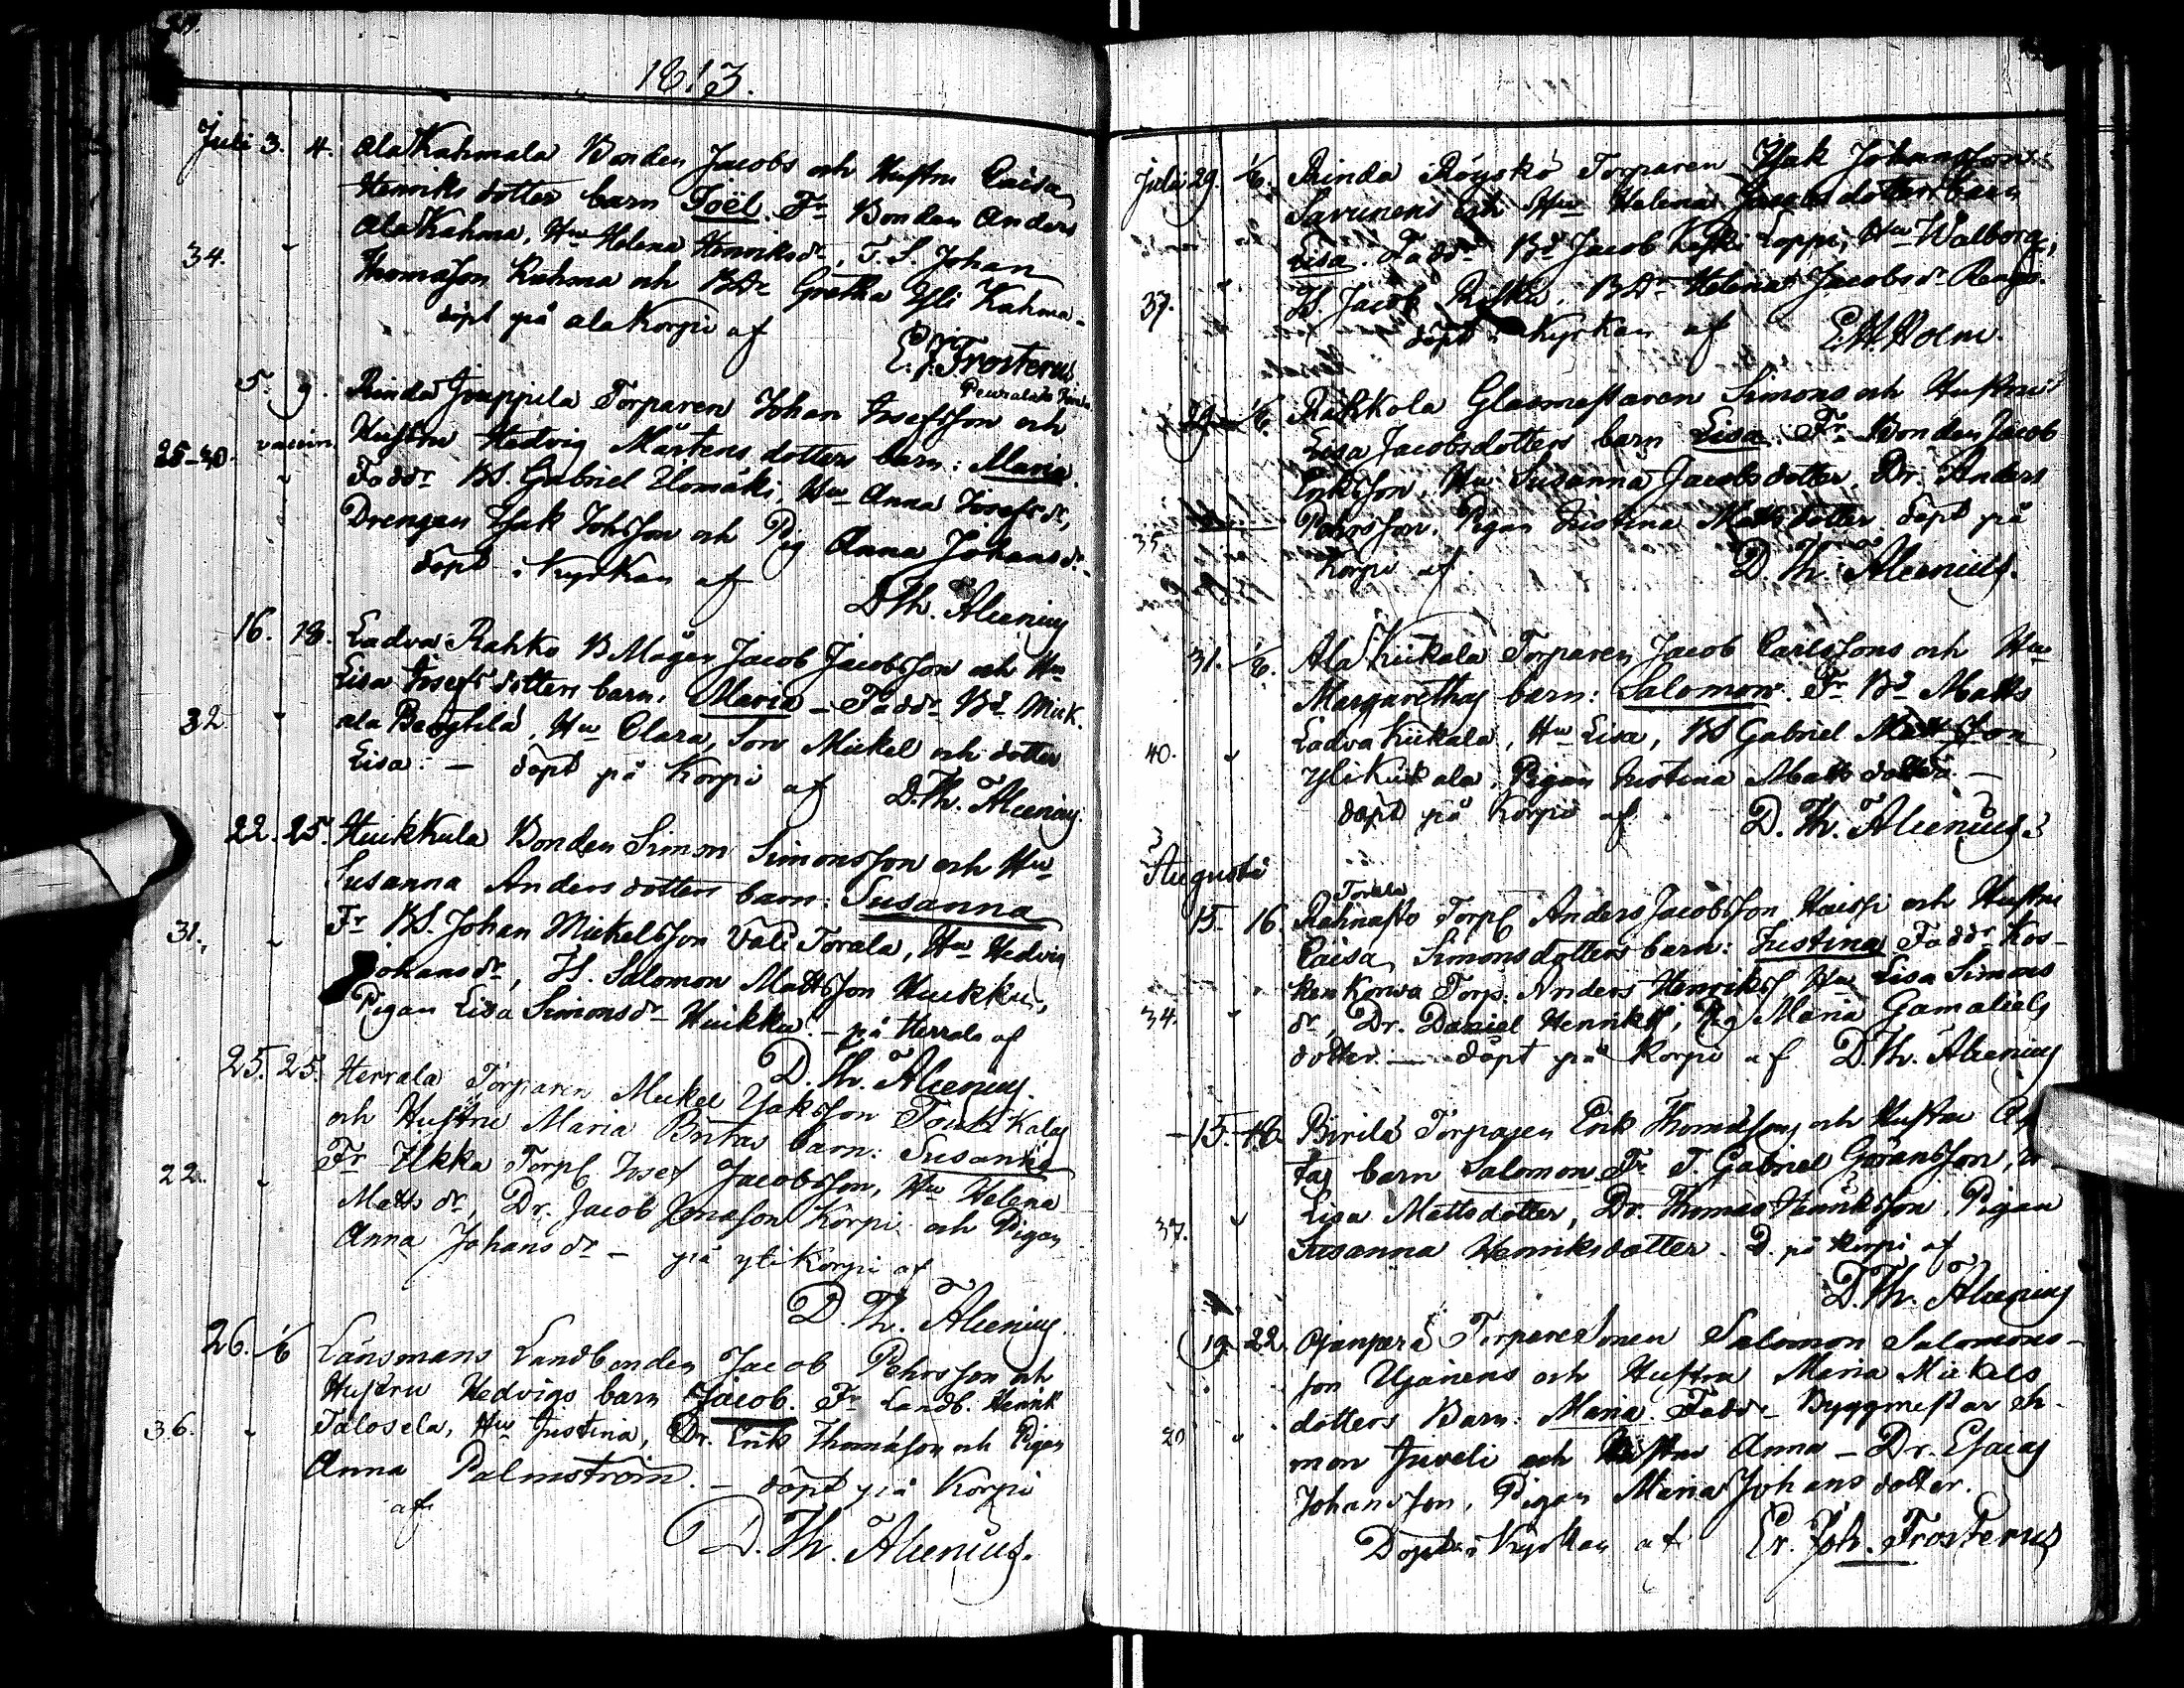 1813.
Juli 3. 4. Ala Kahmala Bonden Jacobs och Hustru Caisa
Henriks dotter barn Joël. Fr Bonden Anders
Ala Kahma, Hu Helena Henriksdr, T. S. Johan
34. Thomasson Kahma och BDr Gretha Yli Kahma.
döpt på ala Korpi af
E. J. Frosterus
5. 9. Rinda Jouppila Torparen Johan Josefsson och
25-40. vaccin. Hustru Hedvig Mårtens dotters barn: Maria.
Faddr BS. Gabriel Ylomäki, Hu Anna Josefsdr,
Drengen Isak Johsson och Pig Anna Johansdr.
döpt i Kyrkan af
D Th. Alcenius
16. 18. Ladva Rahko B Mågen Jacob Jacobsson och Hu
Lisa Josefs dotters barn, Maria - Faddr Bd Mick.
32. ala , Hu Clara, Son Mickel och dotter
Lisa. - döpt på Korpi af
D. Th. Alcenius.
22. 25. Huikkula Bonden Simon Simonsson och Hu
Susanna Anders dotters barn: Susanna
31. Fr BS. Johan Mickelsson Väli Torala, Hu Hedvig
Johansdr, Salomon Mattsson Huikku,
Pigan Lisa Simonsdr Huikku. - på Herrala af
D. Th. Alcenius.
25. 25. Herrala Torparen Mickel Isaksson
och Hustru Maria Britas barn: Susanna
22. Fr Ukka Torp Josef Jacobsson, Hu Helena
Matts dr, Dr. Jacob Jonasson Korpi och Pigan
Anna Johansdr - på yli Korpi af
D. Th. Alcenius.
26. 1/8 Länsmans Landbonden Jacob Pehrsson och
Hustru Hedvigs barn Jacob. Fr Landb. Henrik
36. Talosela, Hu Justina, Dr. Erik Thomasson och Pigan
Anna Palmström. - döpt på Korpi
af
D. Th. Alcenius.
Juli 29. 1/8. Rinda Röyskö Torparen Isak Johansson
Savunens och Hu Helena Jacobsdotters barn
Lisa. Faddr Bd Jacob , Hu Walborg,
37. Jacob , BDr Helena Jacobsdr
döpt i Kyrkan af E. H. Holm.
1/8. Rahkola Glasmestaren Simons och Hustru
Lisa Jacobsdotters barn Lisa. Fr Bonden Jacob
Eriksson, Hu Susanna Jacobsdotter, Dr. Anders
35. Pehrsson, Pigan Justina Matts dotter. döpt på
Korpi af D. Th. Alcenius.
31. 1/8. Ala Kiikala Torparen Jacob Carlssons och Hu
Margarethas barn: Salomon. Fr Bd Matts
40. Ladva Kiikala, Hu Lisa, BS Gabriel Mattsson
yli Kiikala, Pigan Justina Matts dotter -
döpt på Korpi af D. Th. Alcenius.
Augusti
Torala
15. 16. Torp Anders Jacobsson och Hustru
Caisa Simonsdotters barn: Justina Faddr Kos-
ken Korwa Torp. Anders Henrikss Hu Lisa Simons
34. dr, Dr. Daniel Henrikss, Pig Maria Gamaliels
dotter. - döpt på Korpi af D. Th. Alcenius
15. 18. Birilä Torparen Erik Thomassons och Hustru
tas barn Salomon Fr T. Gabriel Göransson,
37. Lisa Mattsdotter, Dr. Thomas Henriksson, Pigan
Susanna Henriksdotter. D. på Korpi af
D. Th. Alcenius
19. 22. Ojanperä Torpare Sonen Salomon Salomons-
son Ujänens och Hustru Maria Mickels
dotters Barn. Maria. Faddr Byggmestar
20 och Hustru Anna - Dr. Esaias
Johansson, Pigan Maria Johans dotter.
Döpt i Kyrkan af Er. Joh. Frosterus